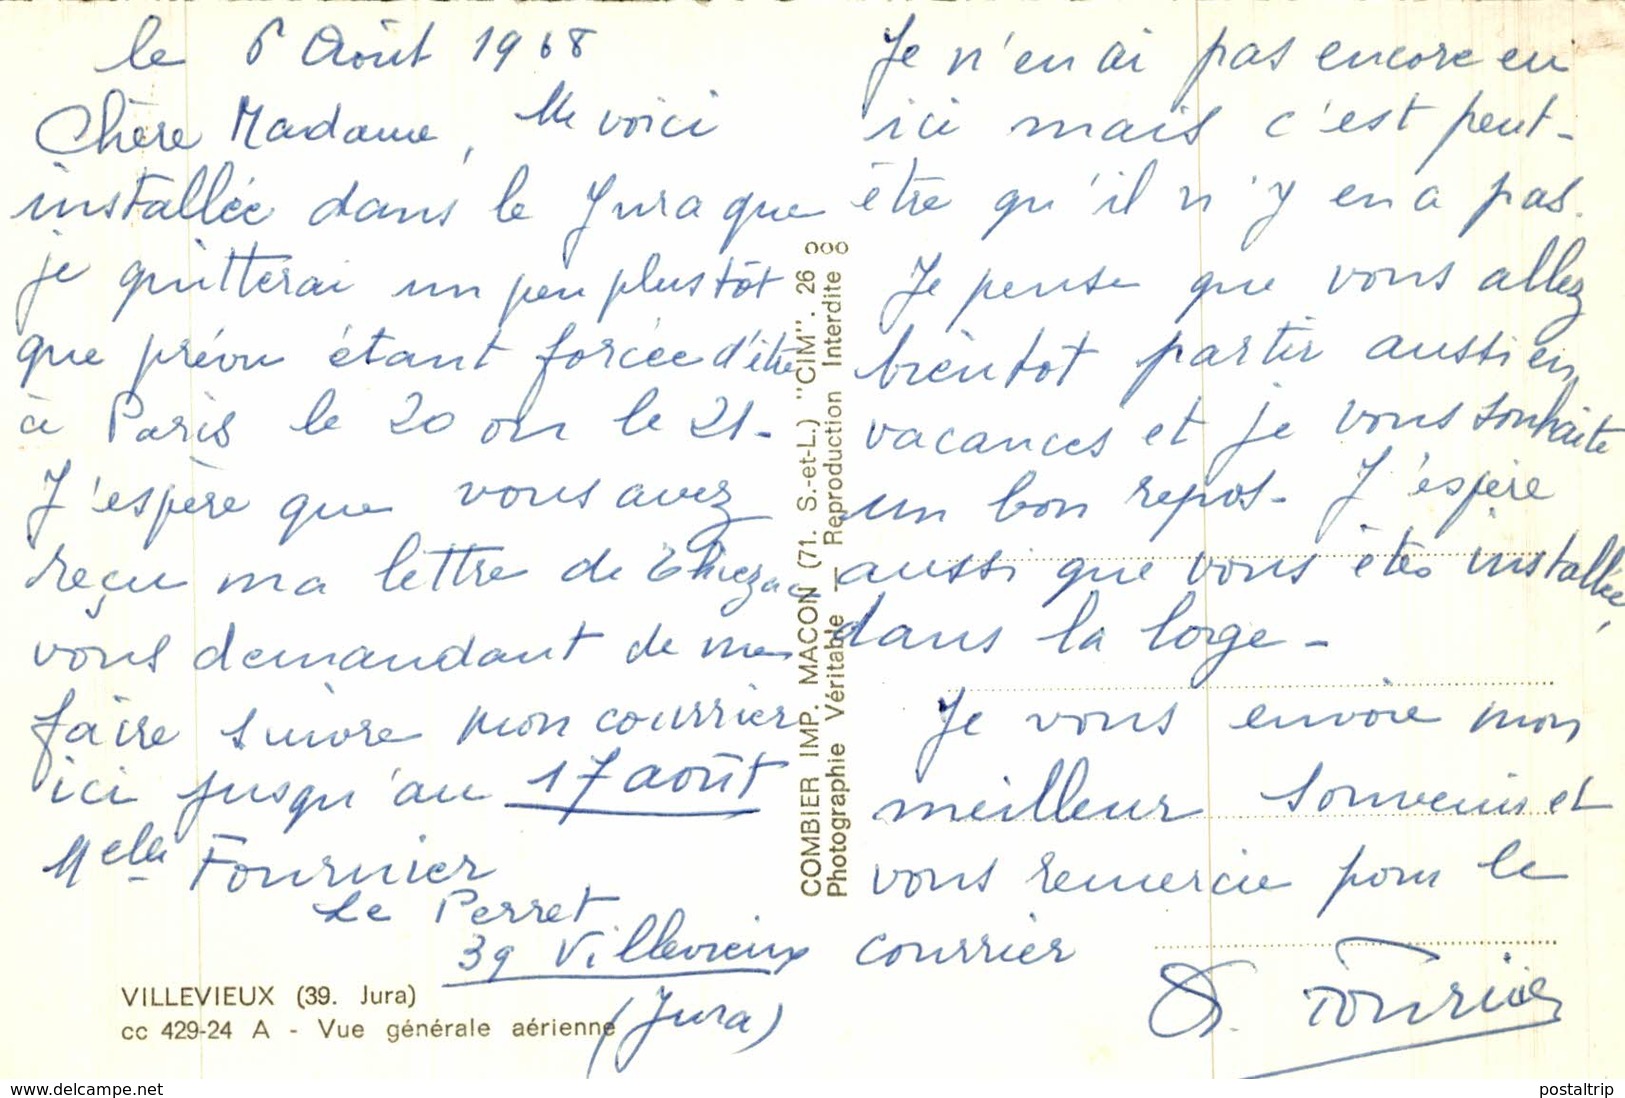 le 6 Août 1968
Chère Madame, Me voici
installée dans le Jura que
je quitterai un peu plus tôt
que prévu étant forcée d'être
à Paris le 20 ou le 21-
J'espère que vous avez
reçu ma lettre de
vous demandant de me
faire suivre mon courrier
ici jusqu'au 17 août
Melle Fournier
Le Perret
39 Villevieux
(Jura)
VILLEVIEUX (39. Jura)
cc 429-24 A - Vue générale aérienne
COMBIER IMP. MACON (71. S.-et-L.) "CIM". 26
Photographie Véritable - Reproduction Interdite
Je n'en ai pas encore eu
ici mais c'est peut-
être qu'il n'y en a pas.
Je pense que vous allez
bientot partir aussi en
vacances et je vous souhaite
un bon repos- J'espère
aussi que vous êtes installée
dans la loge-
Je vous envoie mon
meilleur souvenir et
vous remercie pour le
courrier
Fournier
www.delcampe.net
postaltrip